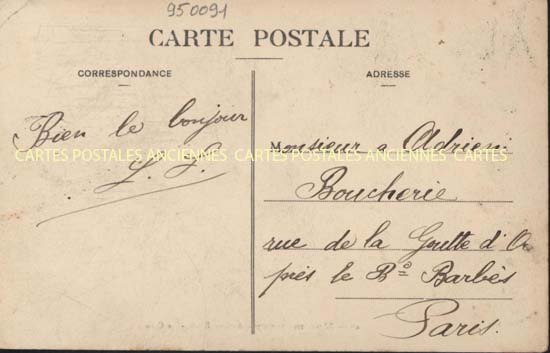 950091
CARTE POSTALE
CORRESPONDANCE
ADRESSE
Bien le bonjour
Monsieur a Adrien
CARTES POSTALES ANCIENNES CARTES POSTALES ANCIENNES CARTES
Boucherie
rue de la Goutte d'Or
près le Bd Barbès
Paris.